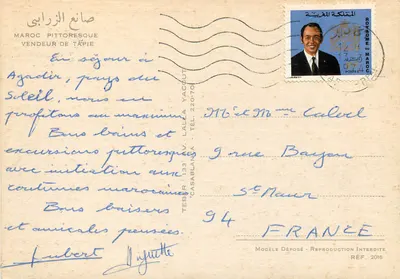 صانع الزرابي
MAROC PITTORESQUE
VENDEUR DE TAPIE
En séjour à
Agadir, pays du
Soleil, nous en
profitons au maximum.
Bons bains et
excursions pittoresques
avec initiation aux
coutumes marocaines
Bons baisers
et amicales pensées
Huguette
CASABLANCA - TEL. 220-70
المملكة المغربية
ROYAUME DU MAROC
Mr et Mme Calvel
9 rue Bayen
St Maur
94 FRANCE
MODÈLE DÉPOSÉ - REPRODUCTION INTERDITE
RÉF.